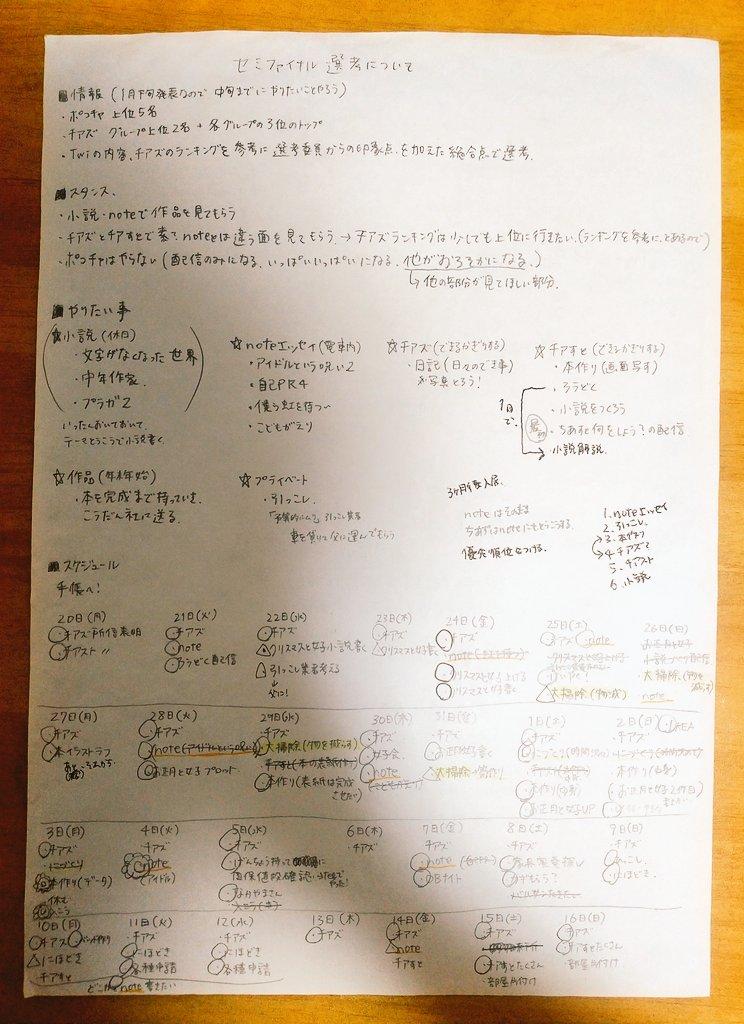 セミファイナル 選考について
■情報 (1月下旬発表なので 中旬までにやりたいことやろう)
・ポコチャ 上位5名
・チアズ グループ上位2名 + 各グループの3位のトップ
・Twiの内容、チアズのランキングを参考に 選考委員からの印象点を加えた総合点で選考。
■スタンス、
・小説・noteで作品を見てもらう
・チアズとチアすとで素で、noteとは違う面を見てもらう → チアズランキングは少しでも上位に行きたい。(ランキングを参考に、とあるので)
・ポコチャはやらない (配信のみになる、いっぱいいっぱいになる、他がおろそかになる。)
↳ 他の部分が見てほしい部分。
■やりたい事
☆小説 (休日)
・文字がなくなった世界
・中年作家
・プラガ2
いったんおいておいて、
☆noteエッセイ (電車内)
・アイドルという呪い2
・自己PR4
・僕ら虹を待つ
・こどもがえり
☆チアズ (できるかぎりする)
・日記 (日々のでき事)
※写真とろう!
☆チアすと (できるかぎりする)
・本作り (画面写す)
・ろうどく
・小説をつくろう
・ちあすと何をしよう?の配信
・小説解説
1日で、
☆作品 (年末年始)
・本を完成まで持っていき、
こうだん社に送る。
☆プライベート
・引っこし
車を借りて父に運んでもらう
noteはそのまま
優先順位をつける。
1. noteエッセイ
2. 引っこし
3. 本作り
4. チアズ
5. チアスト
6. 小説
■スケジュール
手帳へ!
20日(月)
・チアズ所信表明
・チアスト 〃
21日(火)
・チアズ
・note
・ろうどく配信
22日(水)
・チアズ
クリスマスと女子小説書く
・引っこし業者考える
↓
父に!
23日(木)
・チアズ
クリスマスと女子書く
24日(金)
・チアズ
クリスマスと女子上げる
クリスマスと女子書く
25日(土)
・チアズ ・note
大掃除(物減)
26日(日)
お正月と女子
大掃除(物を減らす)
note
27日(月)
・チアズ
・本イラストラフ
28日(火)
・チアズ
・note(アイドルという呪い)
・お正月と女子プロット
29日(水)
・チアズ
・大掃除(物を減らす)
・本作り(表紙は完成させたい)
30日(木)
・チアズ
・女子会
・note
31日(金)
・チアズ
・お正月女子書く
1日(土)
・チアズ
・本作り(中身)
・お正月と女子UP
2日(日)
・チアズ
・本作り(中身)
3日(月)
・チアズ
・本作り(データ)
4日(火)
・チアズ
・note
(アイドル)
5日(水)
・チアズ
6日(木)
・チアズ
7日(金)
・チアズ
・note
・DBナイト
8日(土)
・チアズ
9日(日)
・チアズ
・引っこし
・にほどき
10日(月)
・チアズ
・にほどき
チアすと
11日(火)
・チアズ
・にほどき
・各種申請
どこかでnote書きたい
12日(水)
・チアズ
・にほどき
・各種申請
13日(木)
・チアズ
14日(金)
・チアズ
・note
チアすと
15日(土)
・チアズ
・チアすとたくさん
・部屋片付け
16日(日)
・チアズ
・チアすとたくさん
・部屋片付け